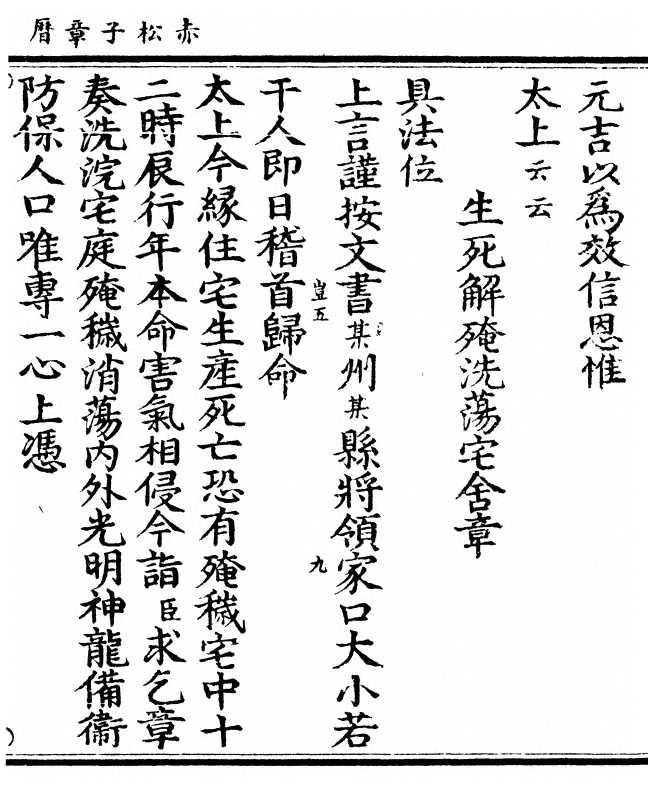 赤松子章曆
元吉以爲效信恩惟
太上云云
生死解殗洗蕩宅舍章
具法位
上言謹按文書某州某縣將領家口大小若
豈五
九
干人即日稽首歸命
太上今緣住宅生產死亡恐有殗穢宅中十
二時辰行年本命害氣相侵今詣臣求乞章
奏洗浣宅庭殗穢消蕩内外光明神龍備衛
防保人口唯專一心上憑